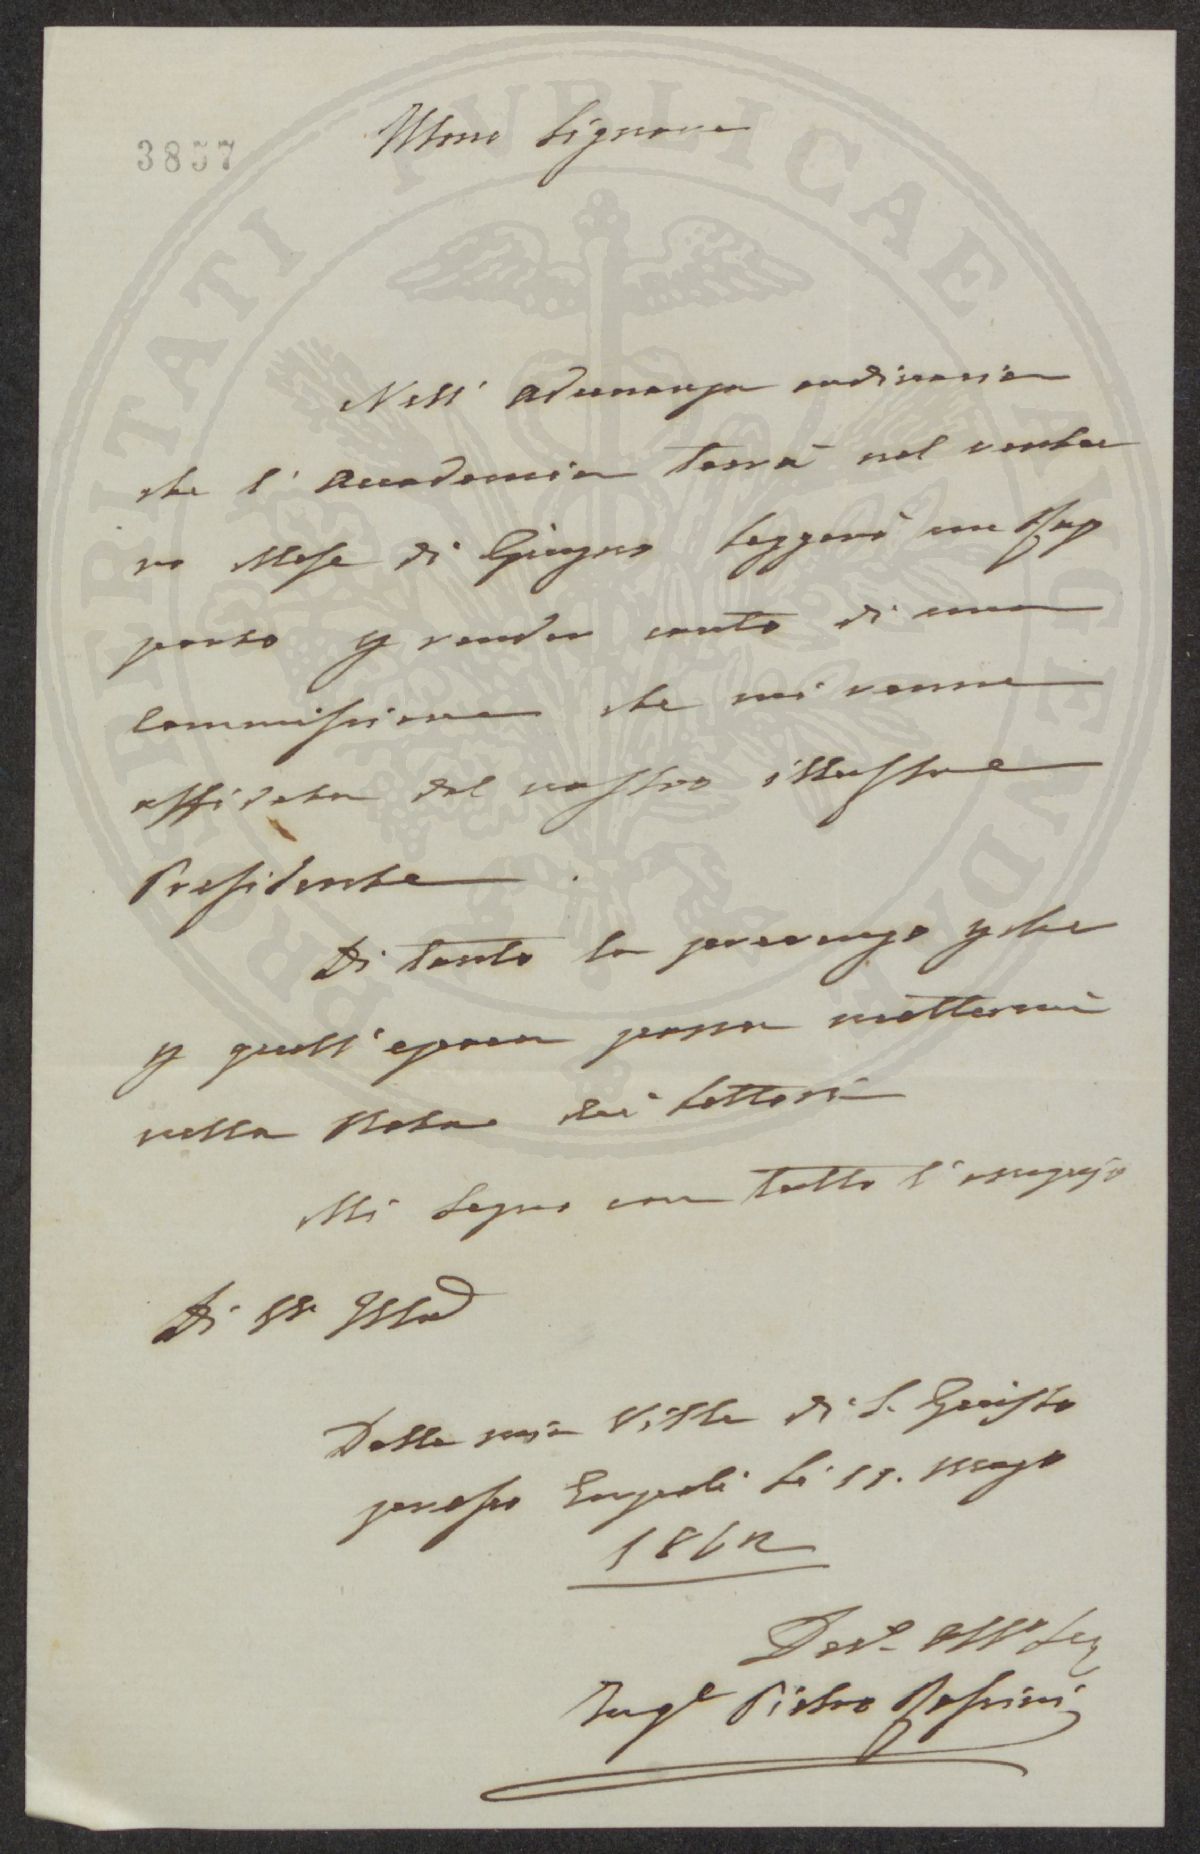 3857
Illmo Signore
Nell' adunanza ordinaria
che l' Accademia terrà nel ventu
ro Mese di Giugno leggerò un Rap
porto p render conto di una
Commissione che mi venne
affidata dal nostro illustre
Presidente.
Di tanto la prevengo pche
p quell' epoca possa mettermi
nella Nota dei Lettori
Mi segno con tutto l' ossequio
Di VS. Illma
Dalla mia Villa di S. Giusto
presso Empoli li 11. Maggio
1862
Dev. Obblo Ser
Ingre Pietro
PROSPERITATI PVBLICAE AVGENDAE